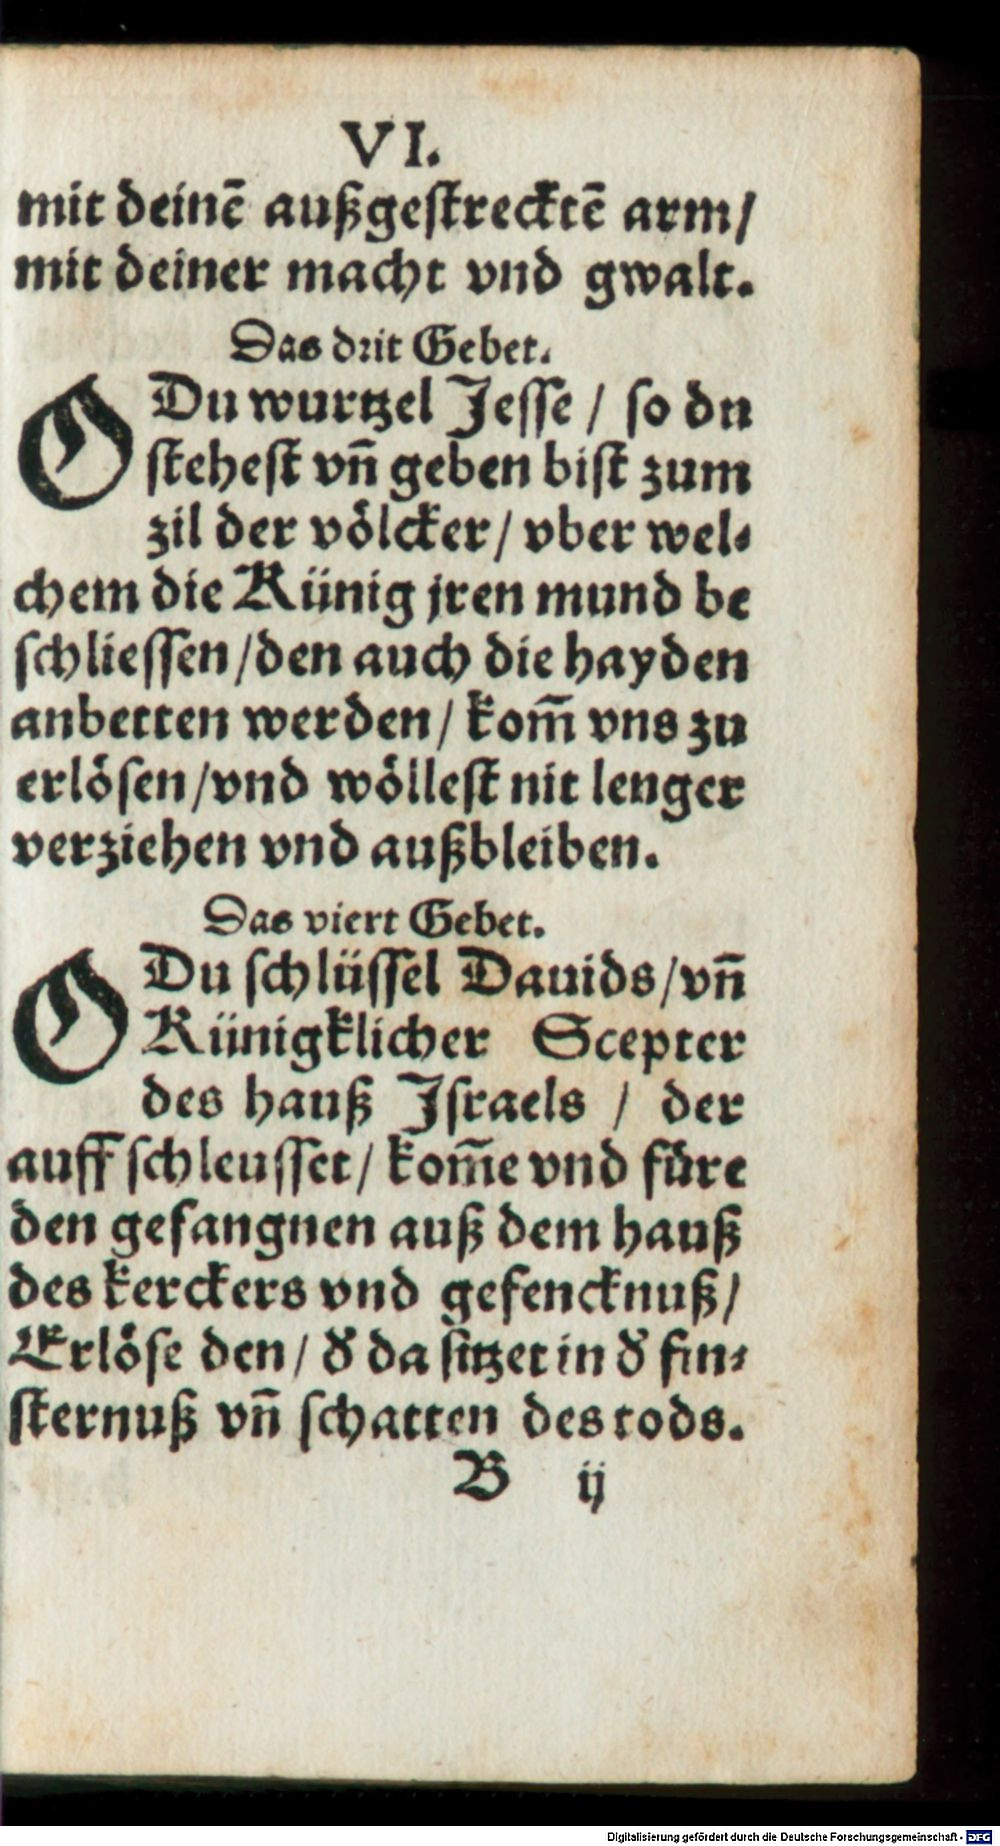 VI.
mit deinē außgestrecktē arm/
mit deiner macht vnd gwalt.
Das drit Gebet.
O Du wurtzel Jesse / so du
stehest vn̄ geben bist zum
zil der völcker / vber wel⸗
chem die Künig jren mund be
schliessen /den auch die hayden
anbetten werden / kom̄ vns zu
erlösen /vnd wöllest nit lenger
verziehen vnd außbleiben.
Das viert Gebet.
O Du schlüssel Dauids /vn̄
Künigklicher Scepter
des hauß Israels / der
auff schleusset / kom̄e vnd füre
den gefangnen auß dem hauß
des kerckers vnd gefencknuß /
Erlöse den / d̕ da sitzet in d̕ fin⸗
sternuß vn̄ schatten des tods.
B ij
Digitalisierung gefördert durch die Deutsche Forschungsgemeinschaft - DFG